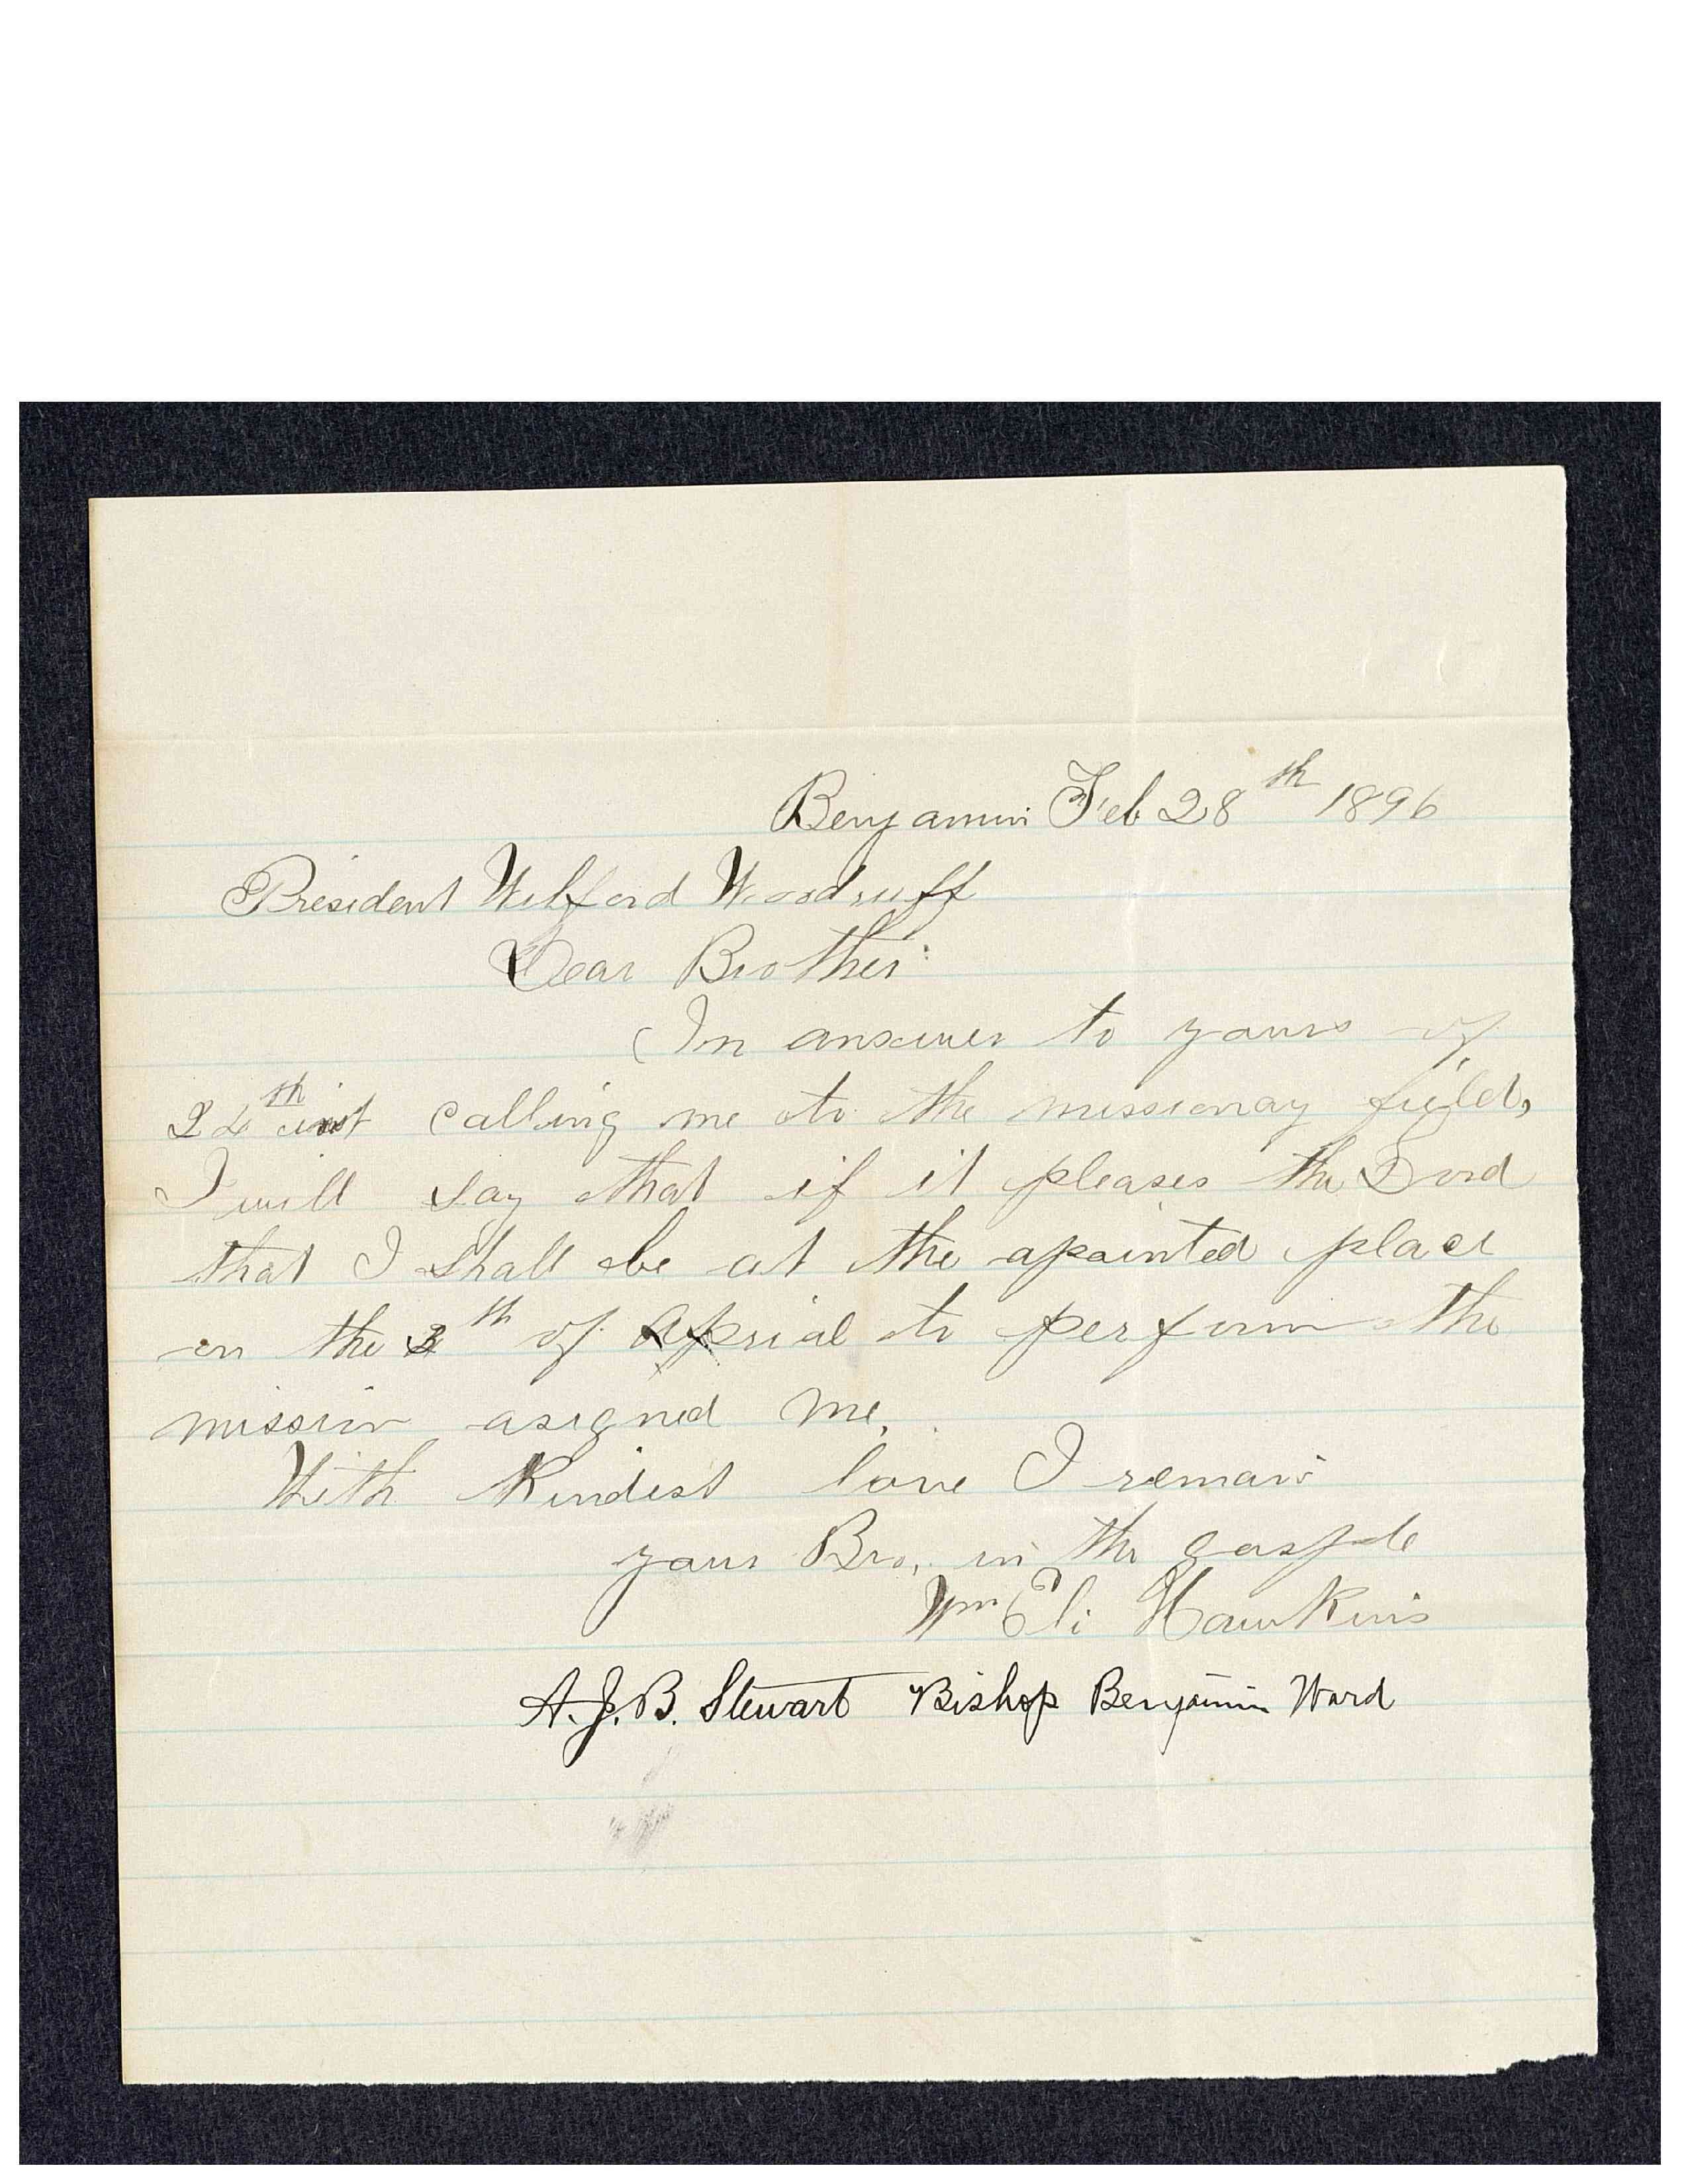 Benjamin Feb 28th 1896
President Wilford Woodruff
Dear Brother:
In answer to yours of
24th inst calling me to the missionay field,
I will say that if it pleases the Lord
that I shall be at the apointed place
on the 3th of Aprial to perform the
mission asigned me.
With Kindest love I remain
your Bro. in the gosple
Wm Eli Hawkins
A. J. B. Stewart Bishop Benjamin Ward